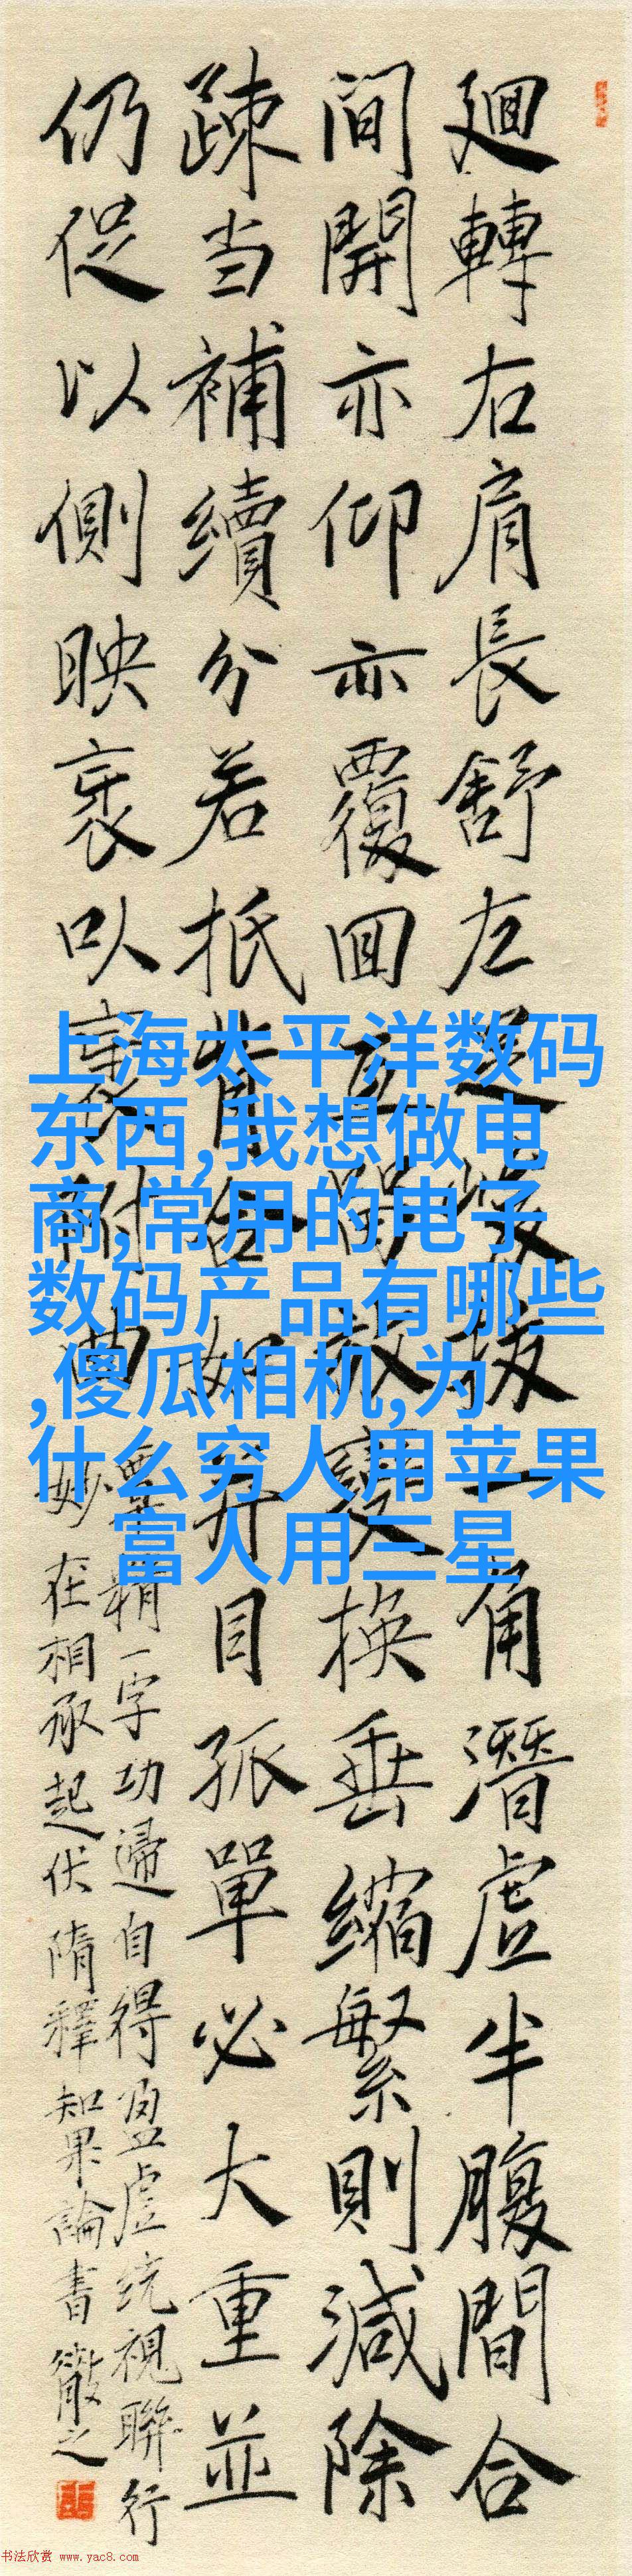 迴轉右肩長舒左足峻拔一角潛虛半腹間合
間開亦仰亦覆回互留放變換垂縮繁則減除
疎当補續分若抵背合如并目孤單必大重並
仍促以側映衺以衺附曲
覃精一字功歸自得盈虛統視聯行
妙在相承起伏隋釋知果論書徽之
上海太平洋数码
东西,我想做电
商,常用的电子
数码产品有哪些
,傻瓜相机,为
什么穷人用苹果
富人用三星
书法欣赏 www.yac8.com